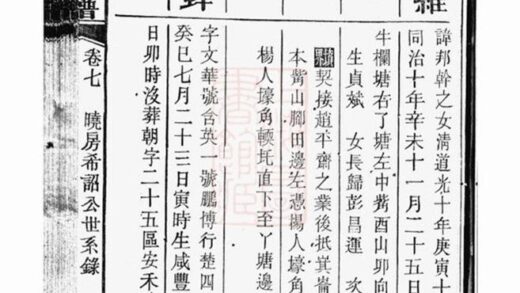 諱邦幹之女清道光十年庚寅十
同治十年辛未十一月二十五日
牛欄塘右了塘左中觜酉山卯向
生貞斌 女長歸彭昌運 次
契接趙平齋之業後抵箕崙
本觜山腳田邊左憑楊人壕角
楊人壕角頓圫直下至丫塘邊
字文華號含英一號鵬博行楚四
癸巳七月二十三日寅時生咸豐
日卯時沒葬朝字二十五區安禾
卷七 曉房希詔公世系錄